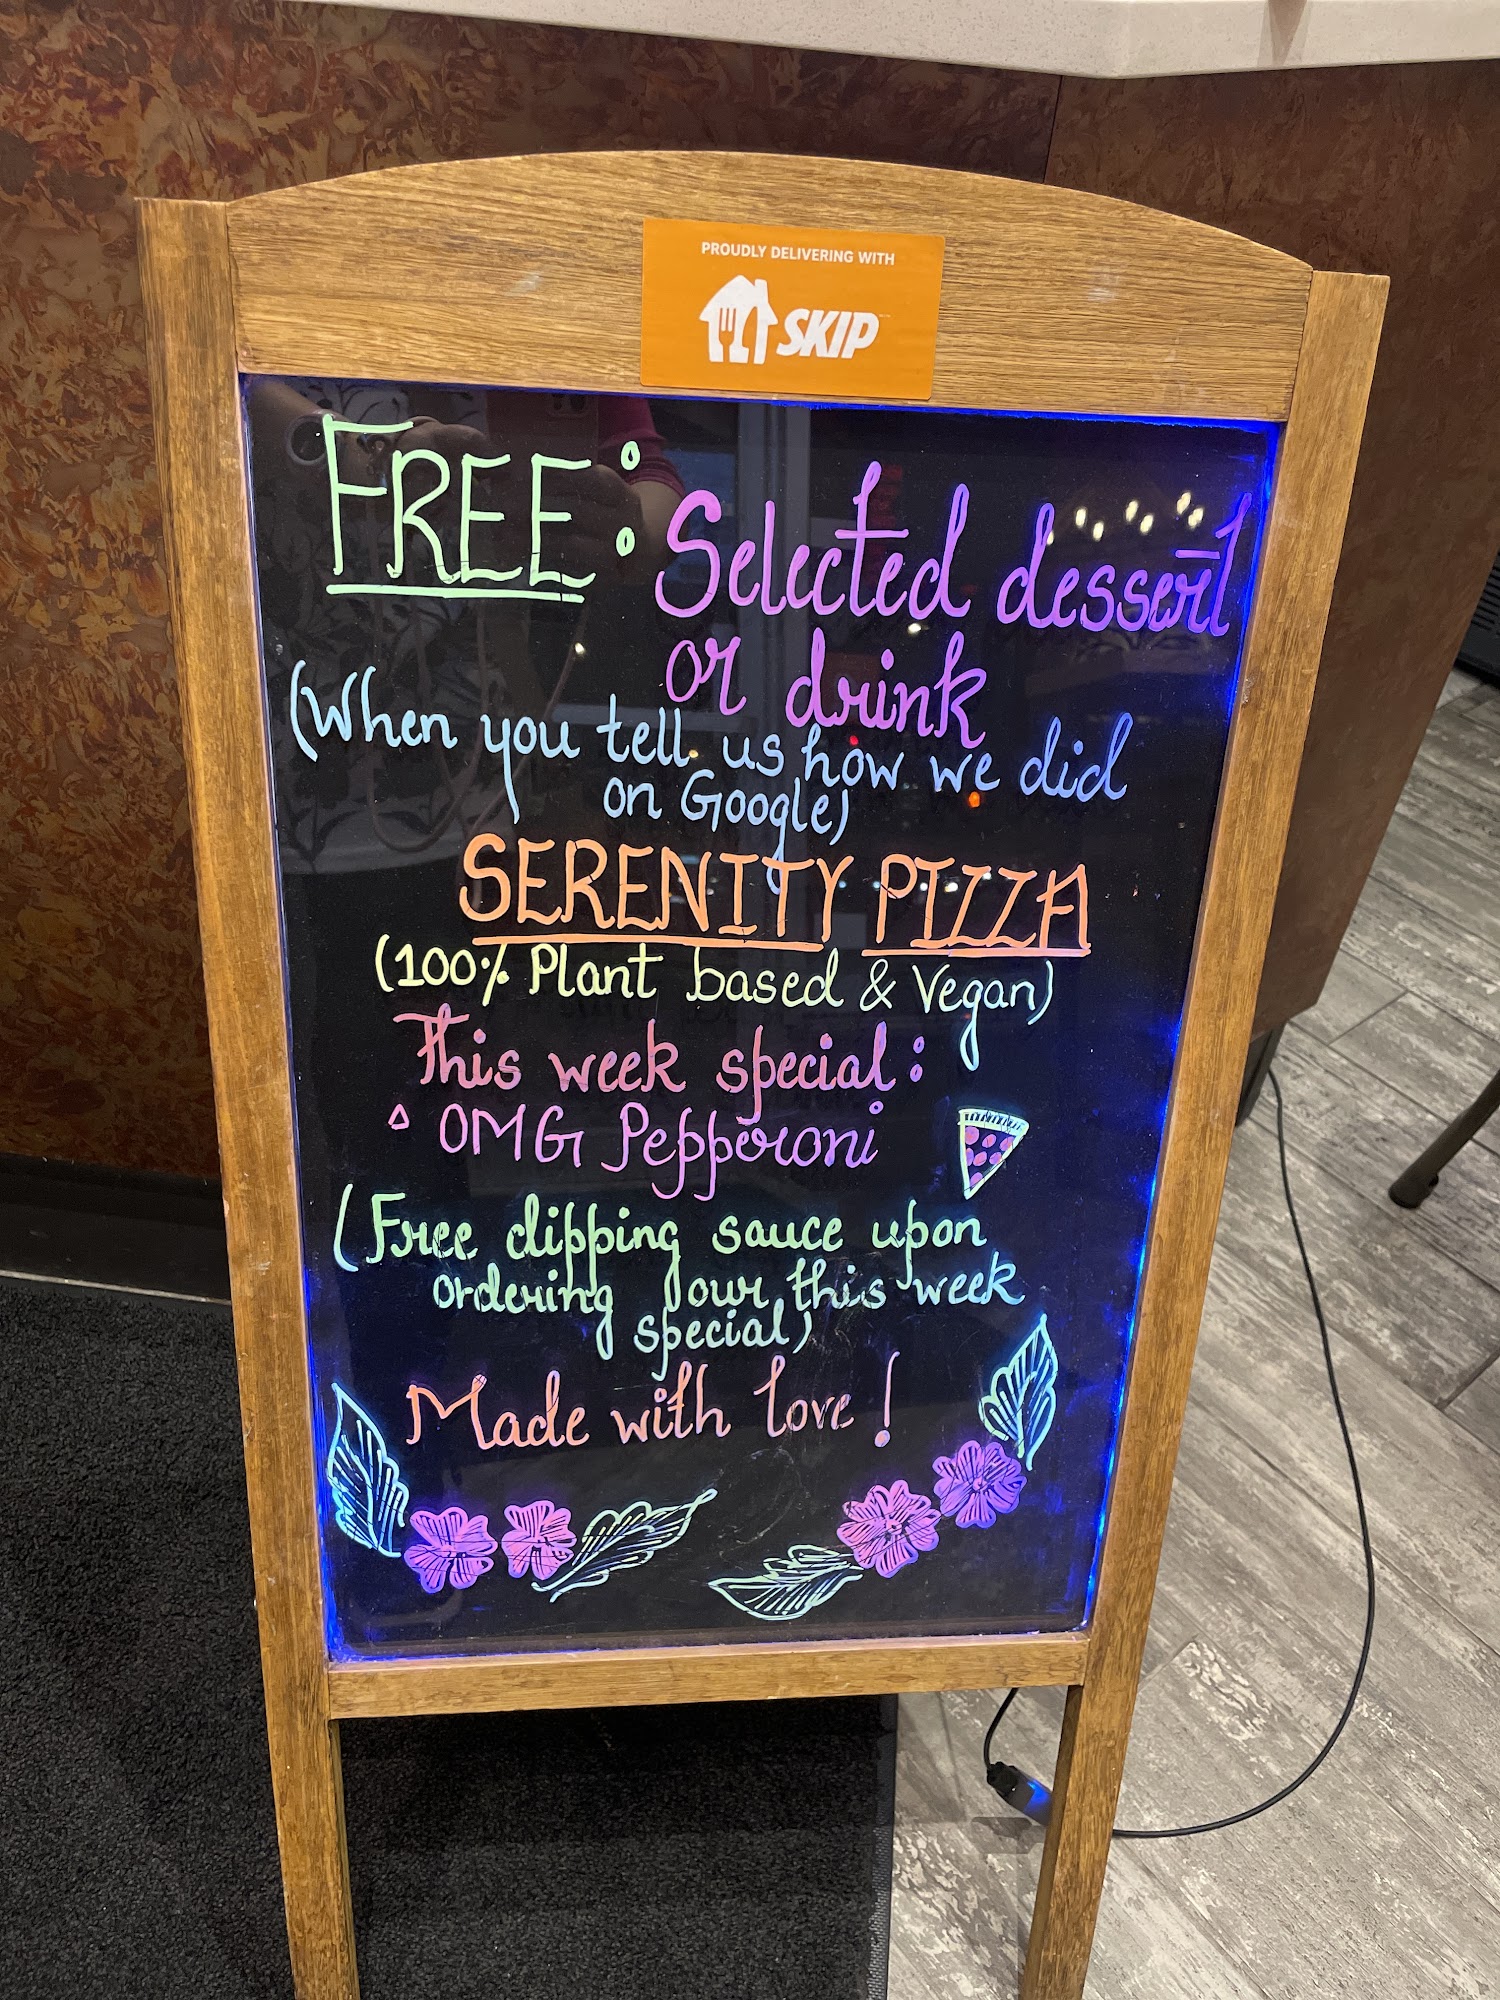 PROUDLY DELIVERING WITH
SKIP
FREE: Selected dessert
or drink
(When you tell us how we did
on Google)
SERENITY PIZZA
(100% Plant based & Vegan)
This week special:
OMG Pepperoni
(Free dipping sauce upon
ordering our this week
special)
Made with love!